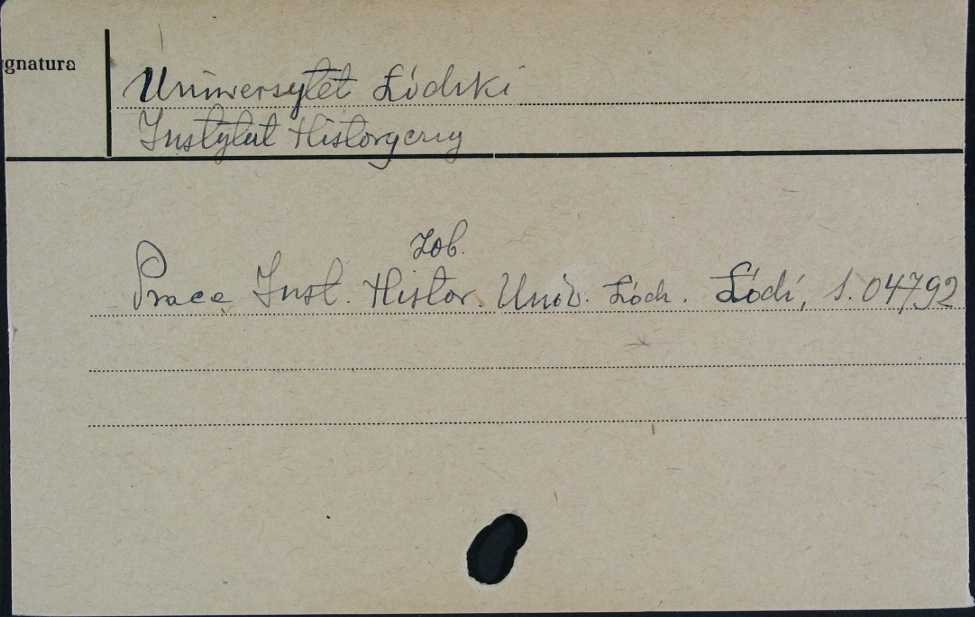 gnatura
Uniwersytet Łódzki
Instytut Historyczny
Zob.
Prace Inst. Histor. Uniw. Łódz. Łódź, S. 04792